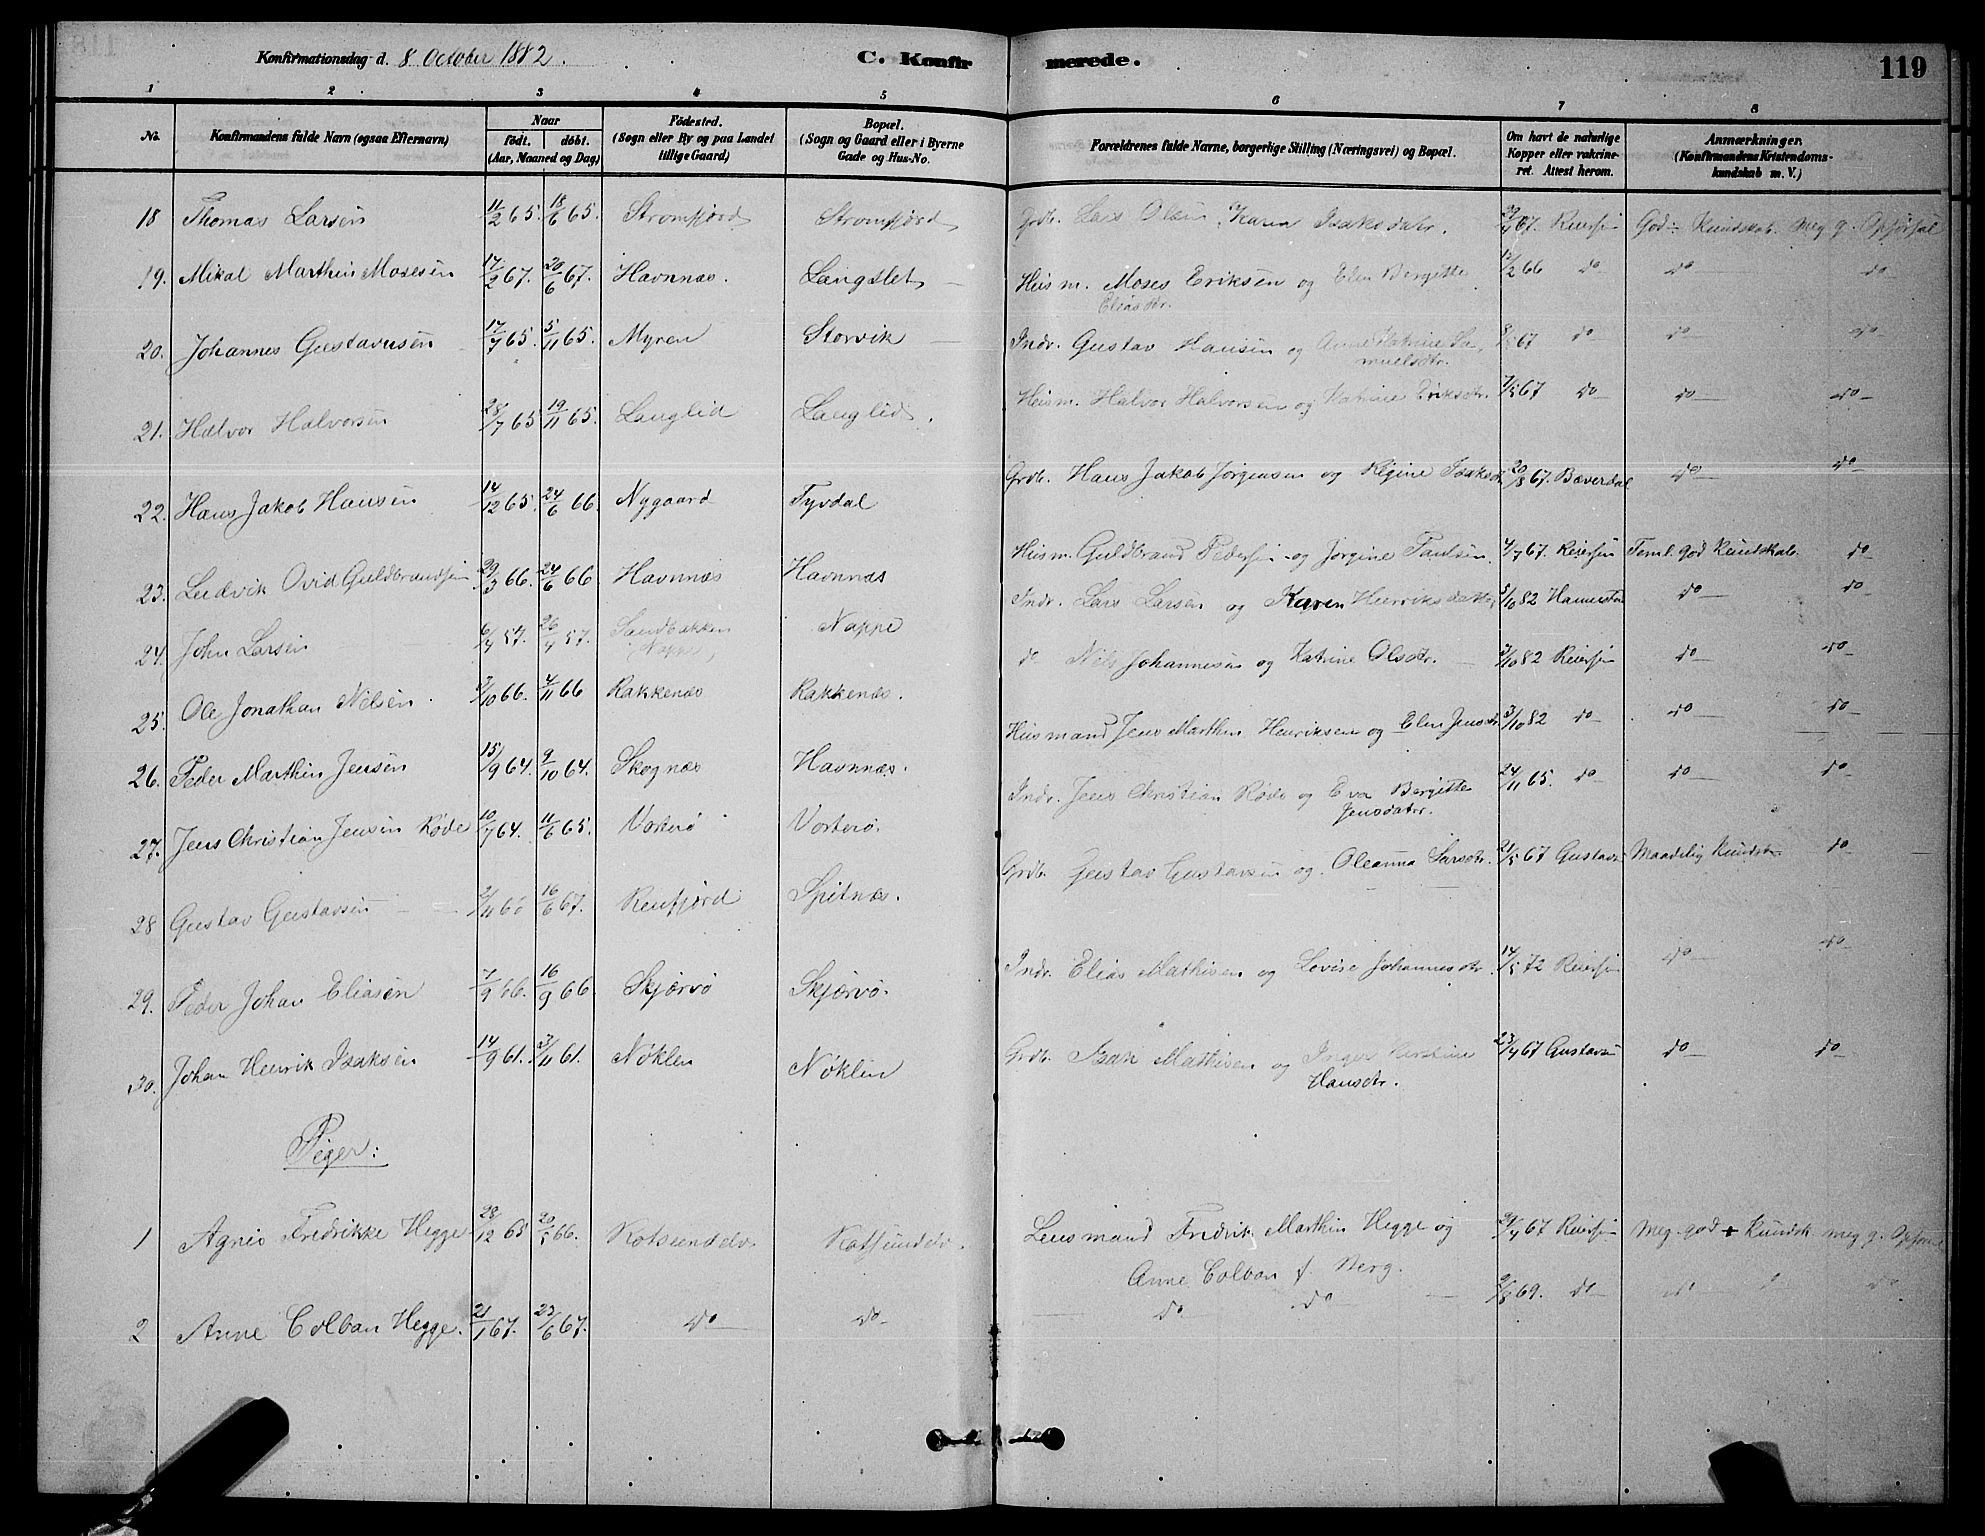 Konfirmationsdag d. 8 October 1882.
C. Konfirmerede.
119
1 2 3 4 5 6 7 8
No. Konfirmandens fulde Navn (ogsaa Efternavn) Naar født. døbt. (Aar, Maaned og Dag) Fødested. (Sogn eller By og paa Landet tillige Gaard) Bopæl. (Sogn og Gaard eller i Byerne Gade og Hus-No. Forældrenes fulde Navne, borgerlige Stilling (Næringsvei) og Bopæl. Om havt de naturlige Kopper eller vakcineret. Attest herom. Anmærkninger. (Konfirmandens Kristendomskundskab m. V.)
18 Thomas Larsen 11/2 65. 18/6 65. Stromfjord Stromfjord Grdb. Lars Olsen, Karen Isaksdatr. 29/4 67. Reiersen God Kundskab. meg g. Opførsel
19. Mikal Marthin Mosesen 17/2 67. 20/6 67. Havnnæs. Langslet Husm. Moses Eriksen og Elen Bergitte 12/2 66 do do do
Eliasdtr.
20. Johannes Gustavsen 17/7 65. 5/11 65. Myren Storvik Indr. Gustav Hansen og Anne Katrine Sa- 8/5 67 do do do
muelsdtr.
21. Halvor Halvorsen 28/7 65 19/11 65. Langlid Langlid. Husm. Halvor Halvorsen og Katrine Eriksdtr. 7/5 67 do do do
22. Hans Jakob Hansen 14/12 65. 24/6 66. Nygaard Tyvdal Grdb. Hans Jakob Jørgensen og Regine Isaksdr 20/8 67. Bæverdal do do
23. Ludvik Ovid Guldbrandsen 29/3 66. 24/6 66 Havnnæs Havnnæs Husm. Guldbrand Pedersen og Jørgine Paulsen. 4/7 67. Reiersen Teml. god Kundskab. do
24. John Larsen 6/4 57. 26/4 57. Sandbakken Nappe Indr. Lars Larsen og Karen Henriksdatter 5/10 82 do do
25. Ole Jonathan Nilsen. 3/10 66. 4/11 66 Rakkenæs Rakkenæs. do Nils Johannesen og Katrine Olsdtr. 3/10 82 Reiersen do do
26. Peder Marthin Jensen 15/9 64. 9/10 64. Skognæs Havnnæs. Husmand Jens Marthin Henriksen og Elen Jensdtr. 3/10 82 do do do
27. Jens Christian Jensen Røde 10/7 64. 11/6 65. Vorterø Vorterø. Indr. Jens Christian Røde og Eva Bergitte 24/11 65. do do do
Jensdatter.
28 Gustav Gustavsen 2/11 66 16/6 67. Reinfjord Spitnæs. Grdb. Gustav Gustavsen og Oleanna Larsdtr. 21/5 67 Gustavs Maadelig Kundsk. do
29. Peder Johan Eliasen 7/9 66. 16/9 66. Skjærvø Skjærvø. Indr. Elias Mathisen og Lovise Johannesdtr. 14/5 72 Reiersen do do
30. Johan Henrik Isaksen 14/9 61. 3/11 61. Nøklen Nøklen Grdb. Isak Mathisen og Inger Kirstine 23/4 67 Gustavs do do
Hansdtr.
Piger:
1 Agnes Fredrikke Hegge 28/12 65 20/5 66. Rotsundelv Rotsundelv. Lensmand Fredrik Marthin Hegge og 29/4 67 Reiersen Meg. god Kundsk meg g. Opførsel
Anne Colban f. Berg.
2 Anne Colban Hegge. 21/1 67. 23/6 67. do do do do 9/8 69. do do do